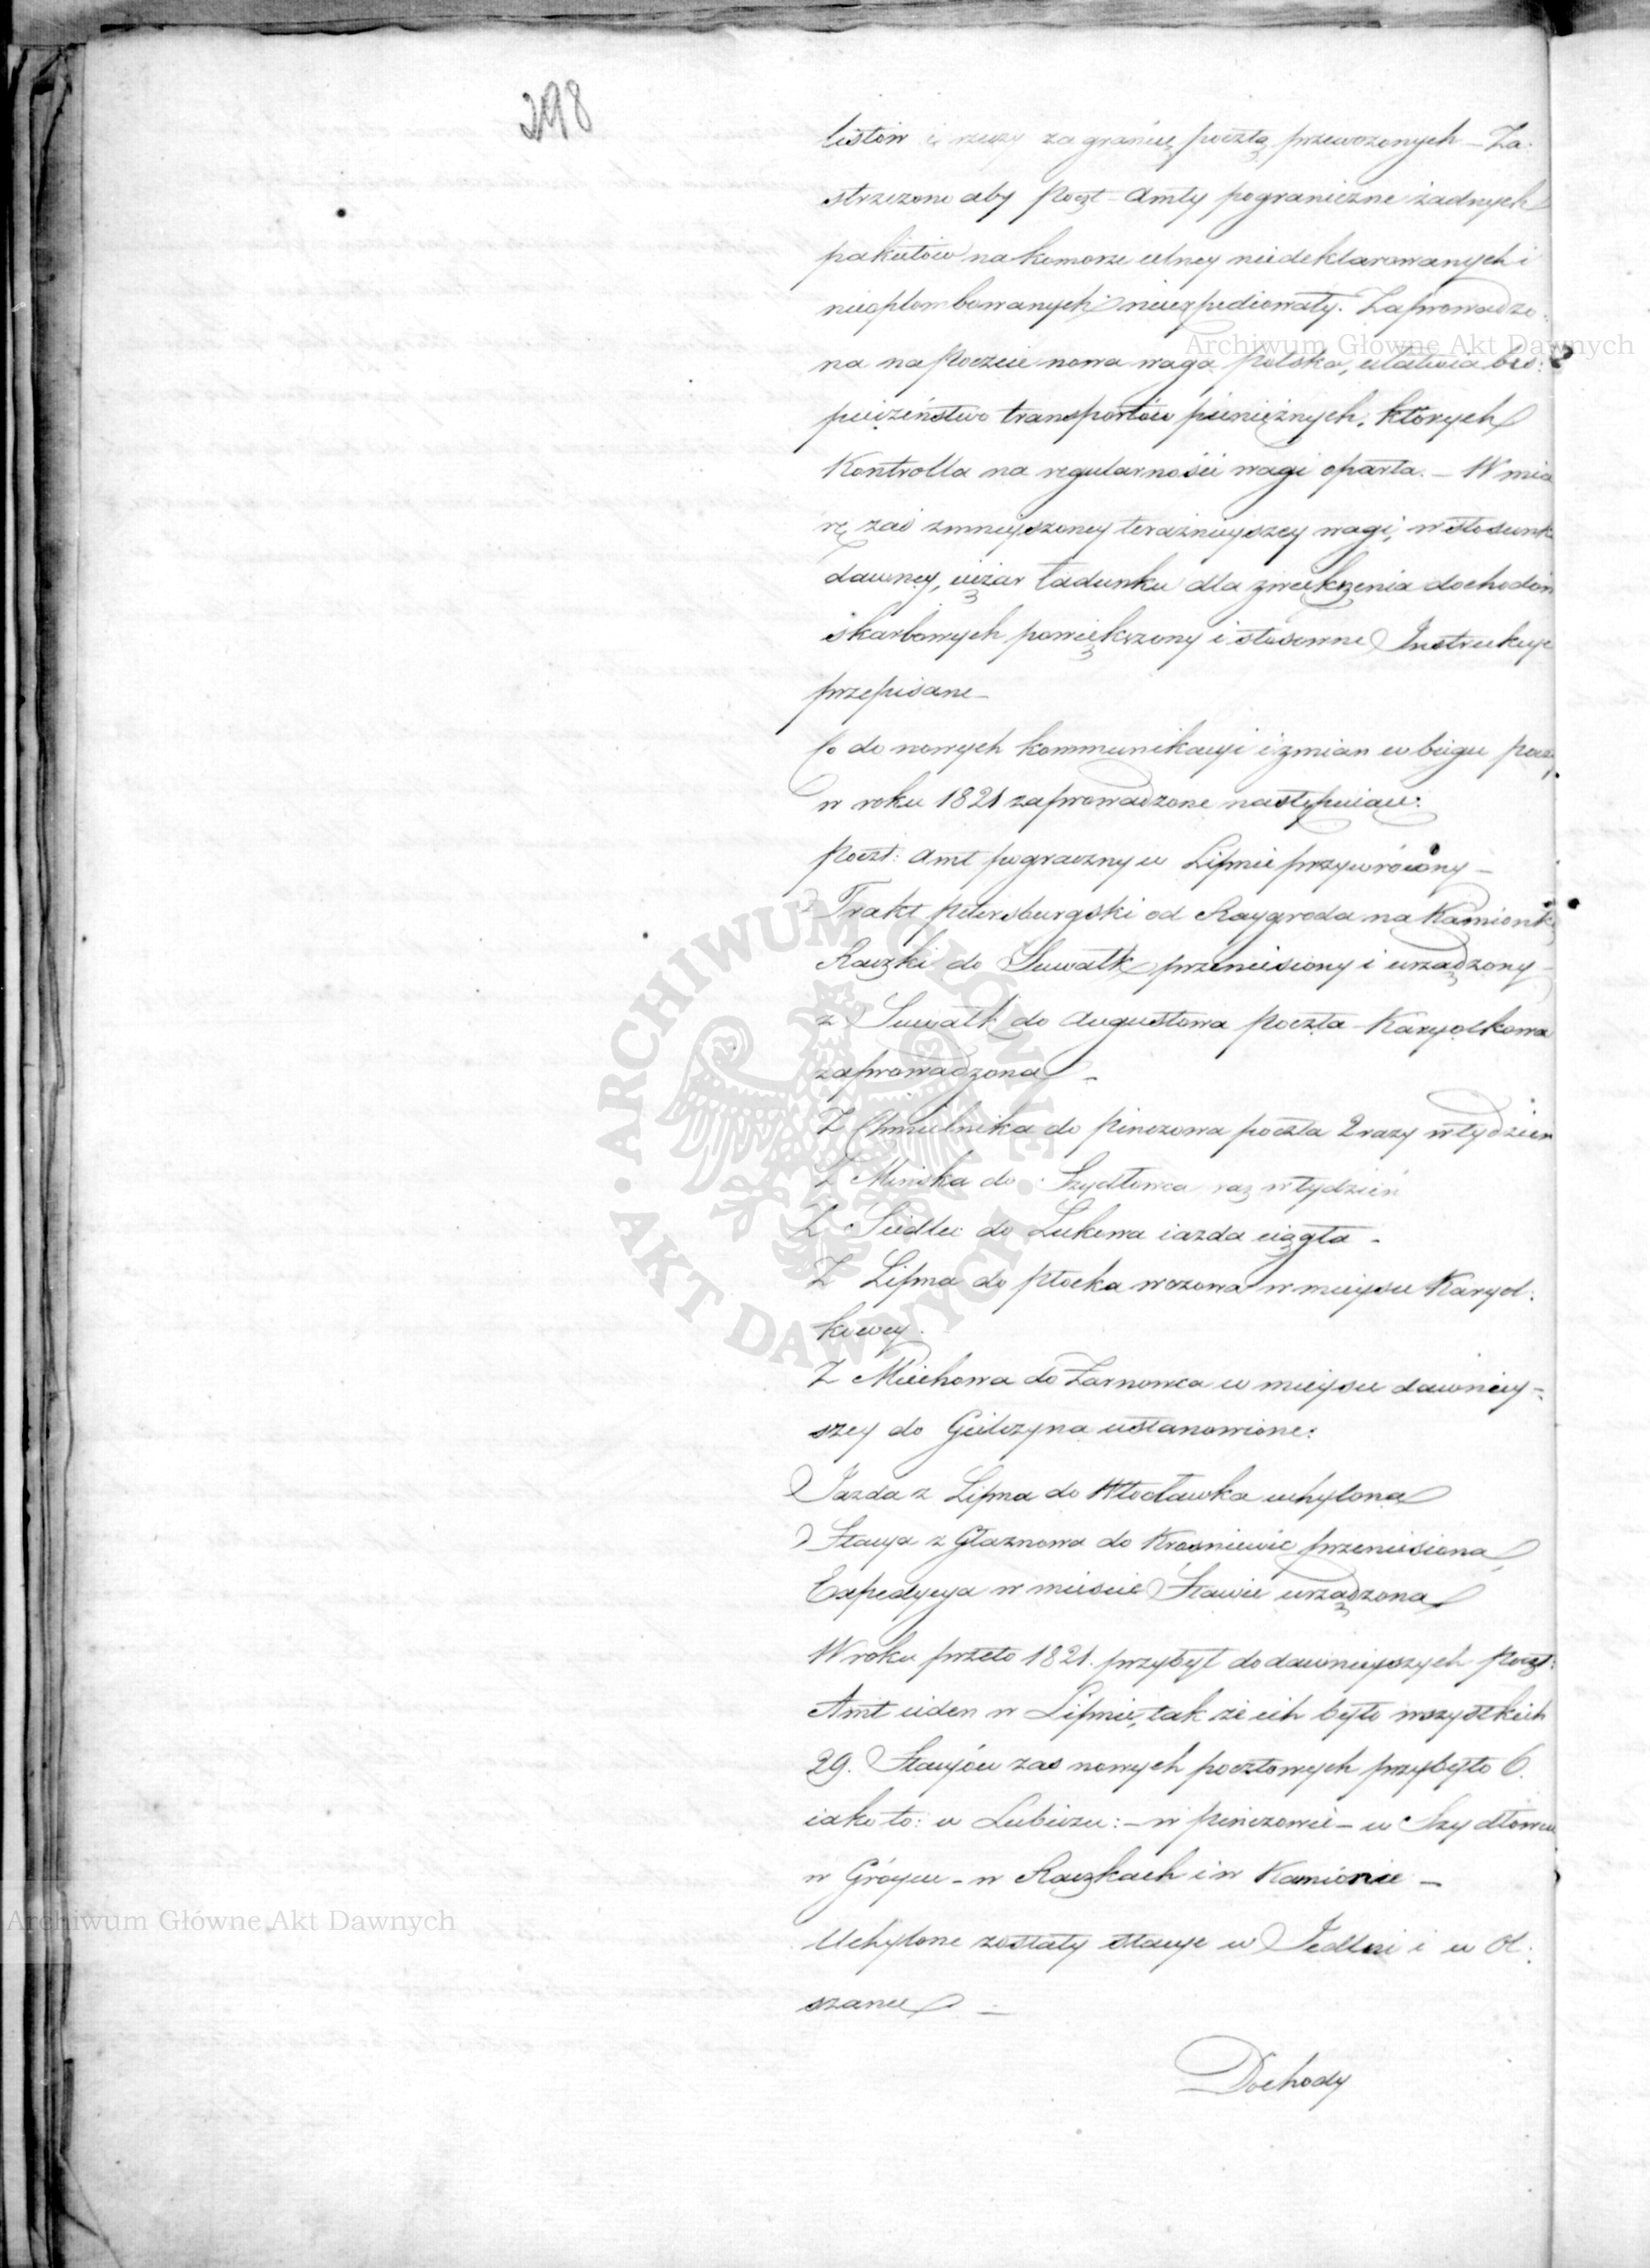 298
listów i rzeczy za granicę pocztą przewożonych – Za:
strzeżono aby Poczt-Amty pograniczne żadnych
pakietów na komorze celney niedeklarowanych i
nieoplombowanych nieexpediowały. Zaprowadzo:
na na Poczcie nowa waga polska, ułatwia bes:
pieczeństwo transportów pieniężnych, których
Kontrolla na regularności wagi oparta. – W mia
rę zaś zmnieyszoney teraźnieyszey wagi, w stosunk
dawney, ciężar ładunku dla zwiększenia dochodów
skarbowych powiększony i stosowne Instrukcye
przepisane –
Co do nowych kommunikacyi i zmian w biegu poczt
w roku 1821 zaprowadzone następuiące:
Poczt: Amt pograczny w Lipnie przywrócony –
Trakt Petersburgski od Raygroda na Kamionk
Raczki do Suwałk przeniesiony i urządzony –
z Suwałk do Augustowa Poczta Karyolkowa
zaprowadzona –
Z Chmielnika do Pinczowa poczta 2 razy w tydzień
Z Minska do Szydłowca raz w tydzień
Z Siedlec do Łukowa iazda ciągła –
Z Lipna do Płocka wozowa w mieysce Karyol:
kowey.
Z Miechowa do Żarnowca w mieysce dawniey-
szey do Gielczyna ustanowione:
Jazda z Lipna do Włocławka uchylona
Stacya z Głaznowa do Krosniewic przeniesiona
Expedycya w mieście Stawie urządzona
W roku przeto 1821. przybył do dawnieyszych Poczt:
Amt ieden w Lipnie, tak że ich było wszystkich
29. Stacyów zaś nowych pocztowych przybyło 6.
iako to: w Lubiczu: – w Pinczowie – w Szydłowcu
w Gróycu – w Raczkach i w Kamionce –
Uchylone zostały stacye w Jedlni i w Ol:
szance –
Dochody
Archiwum Główne Akt Dawnych
Archiwum Główne Akt Dawnych
ARCHIWUM GŁÓWNE AKT DAWNYCH